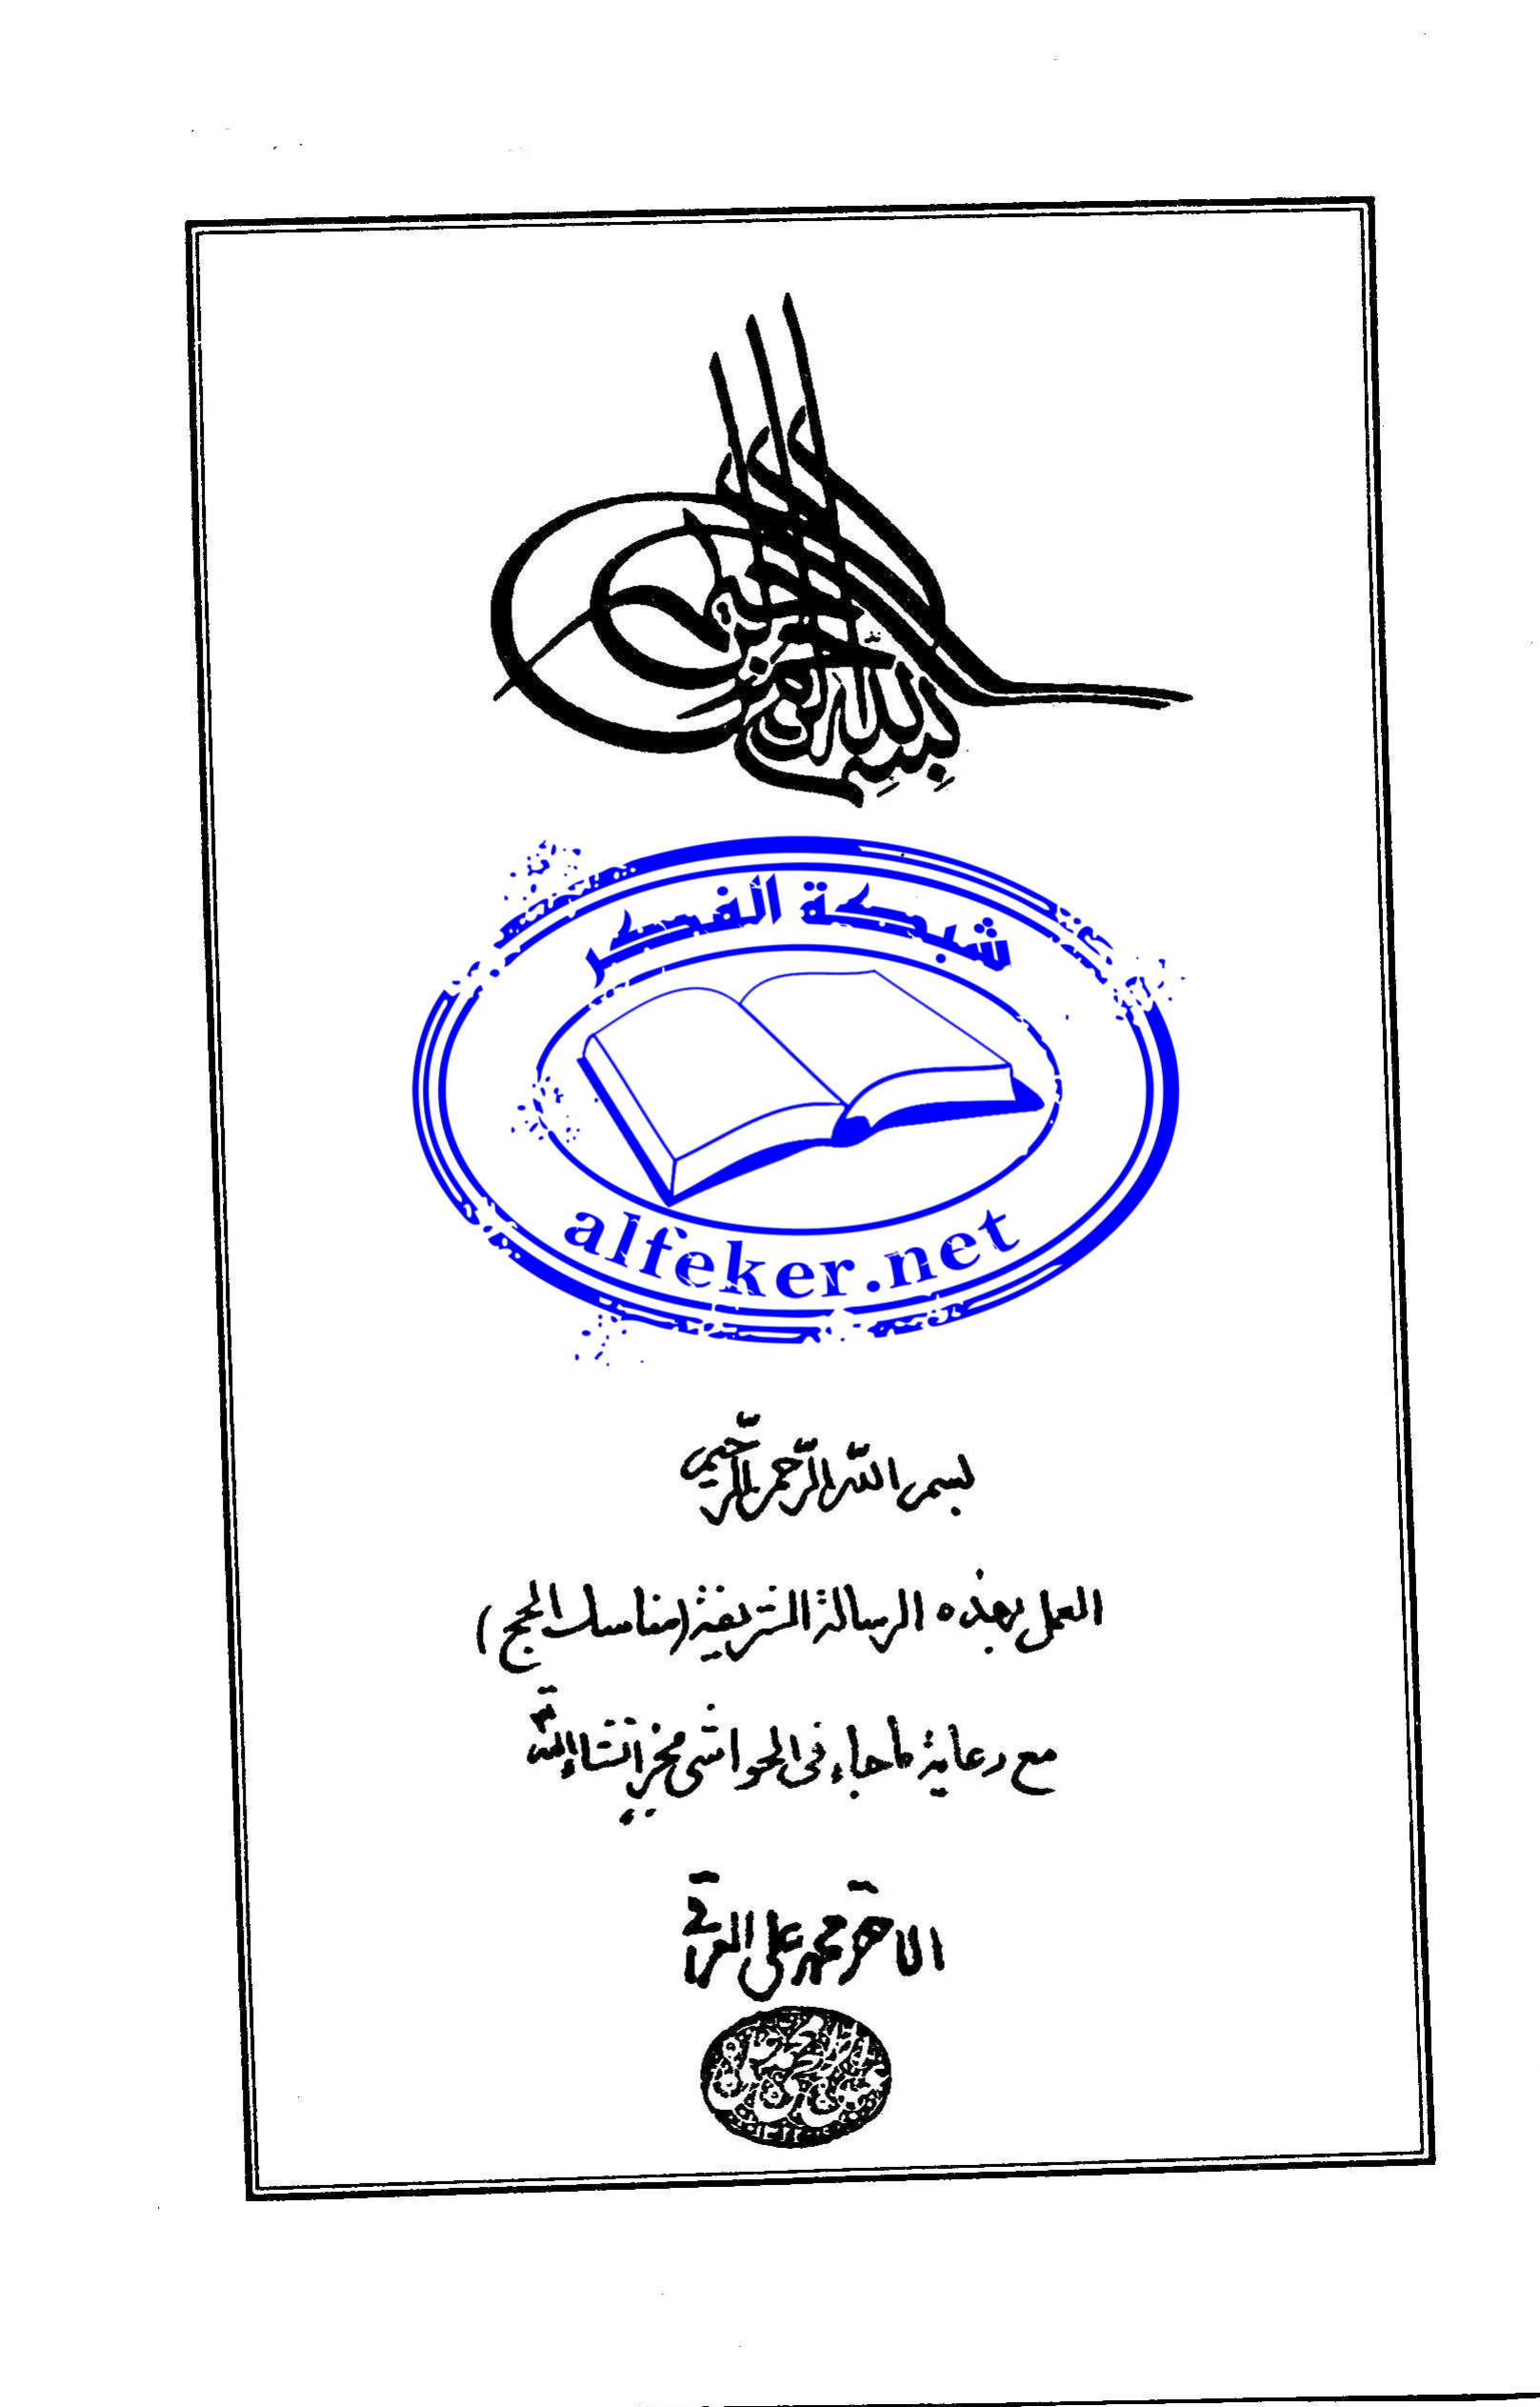 بسم الله الرحمن الرحيم
شبكة الفكر
alfeker.net
بسم اللّه الرّحمن الرّحيم
العمل بهذه الرسالة الشريفة (مناسك الحج)
مع رعاية ما جاء في الحواشي مجزٍ انشاء اللّه
الاحقر محمد علي العراقي